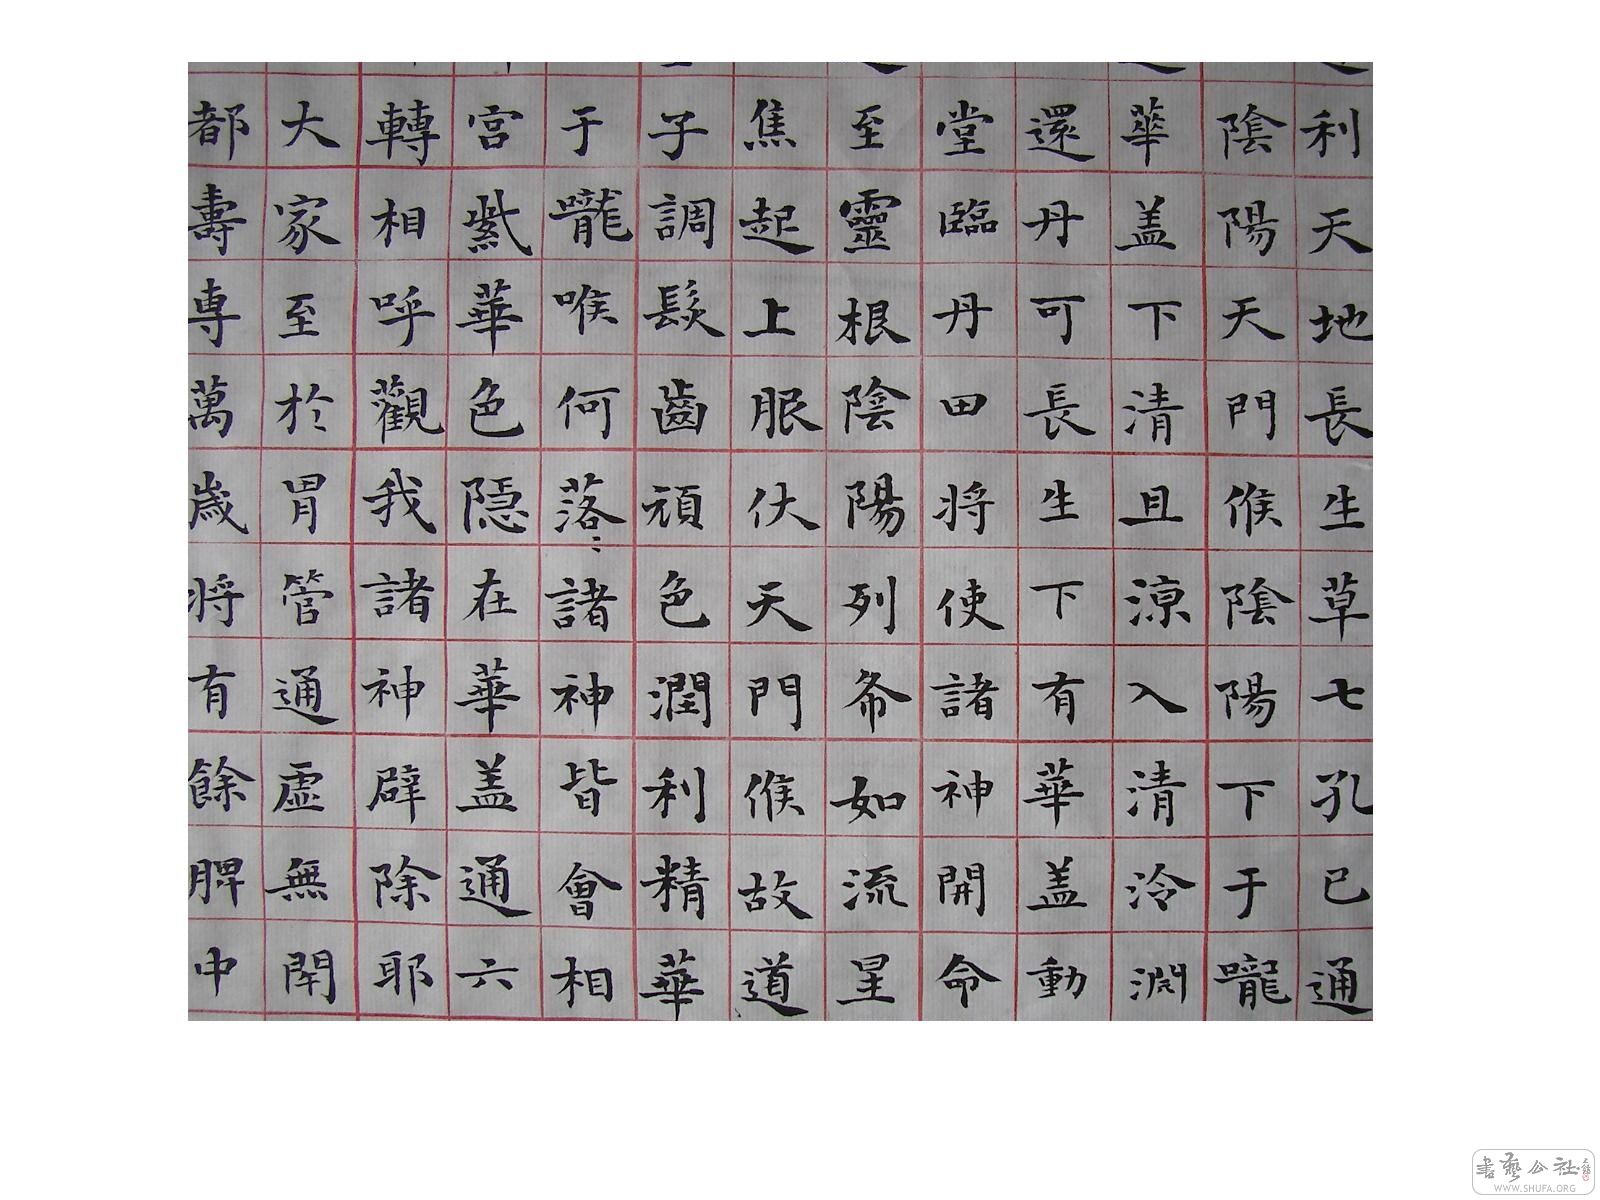 利天地長生草七孔已通
陰陽天門候陰陽下于嚨
華盖下清且涼入清泠淵
還丹可長生下有華盖動
堂臨丹田将使諸神開命
至靈根陰陽列布如流星
焦起上服伏天門候故道
子調髮齒頑色潤利精華
于嚨喉何落〻諸神皆會相
宮紫華色隱在華盖通六
轉相呼觀我諸神辟除耶
大家至於胃管通虛無閉
都壽専萬歲将有餘脾中
書藝公社
WWW.SHUFA.ORG